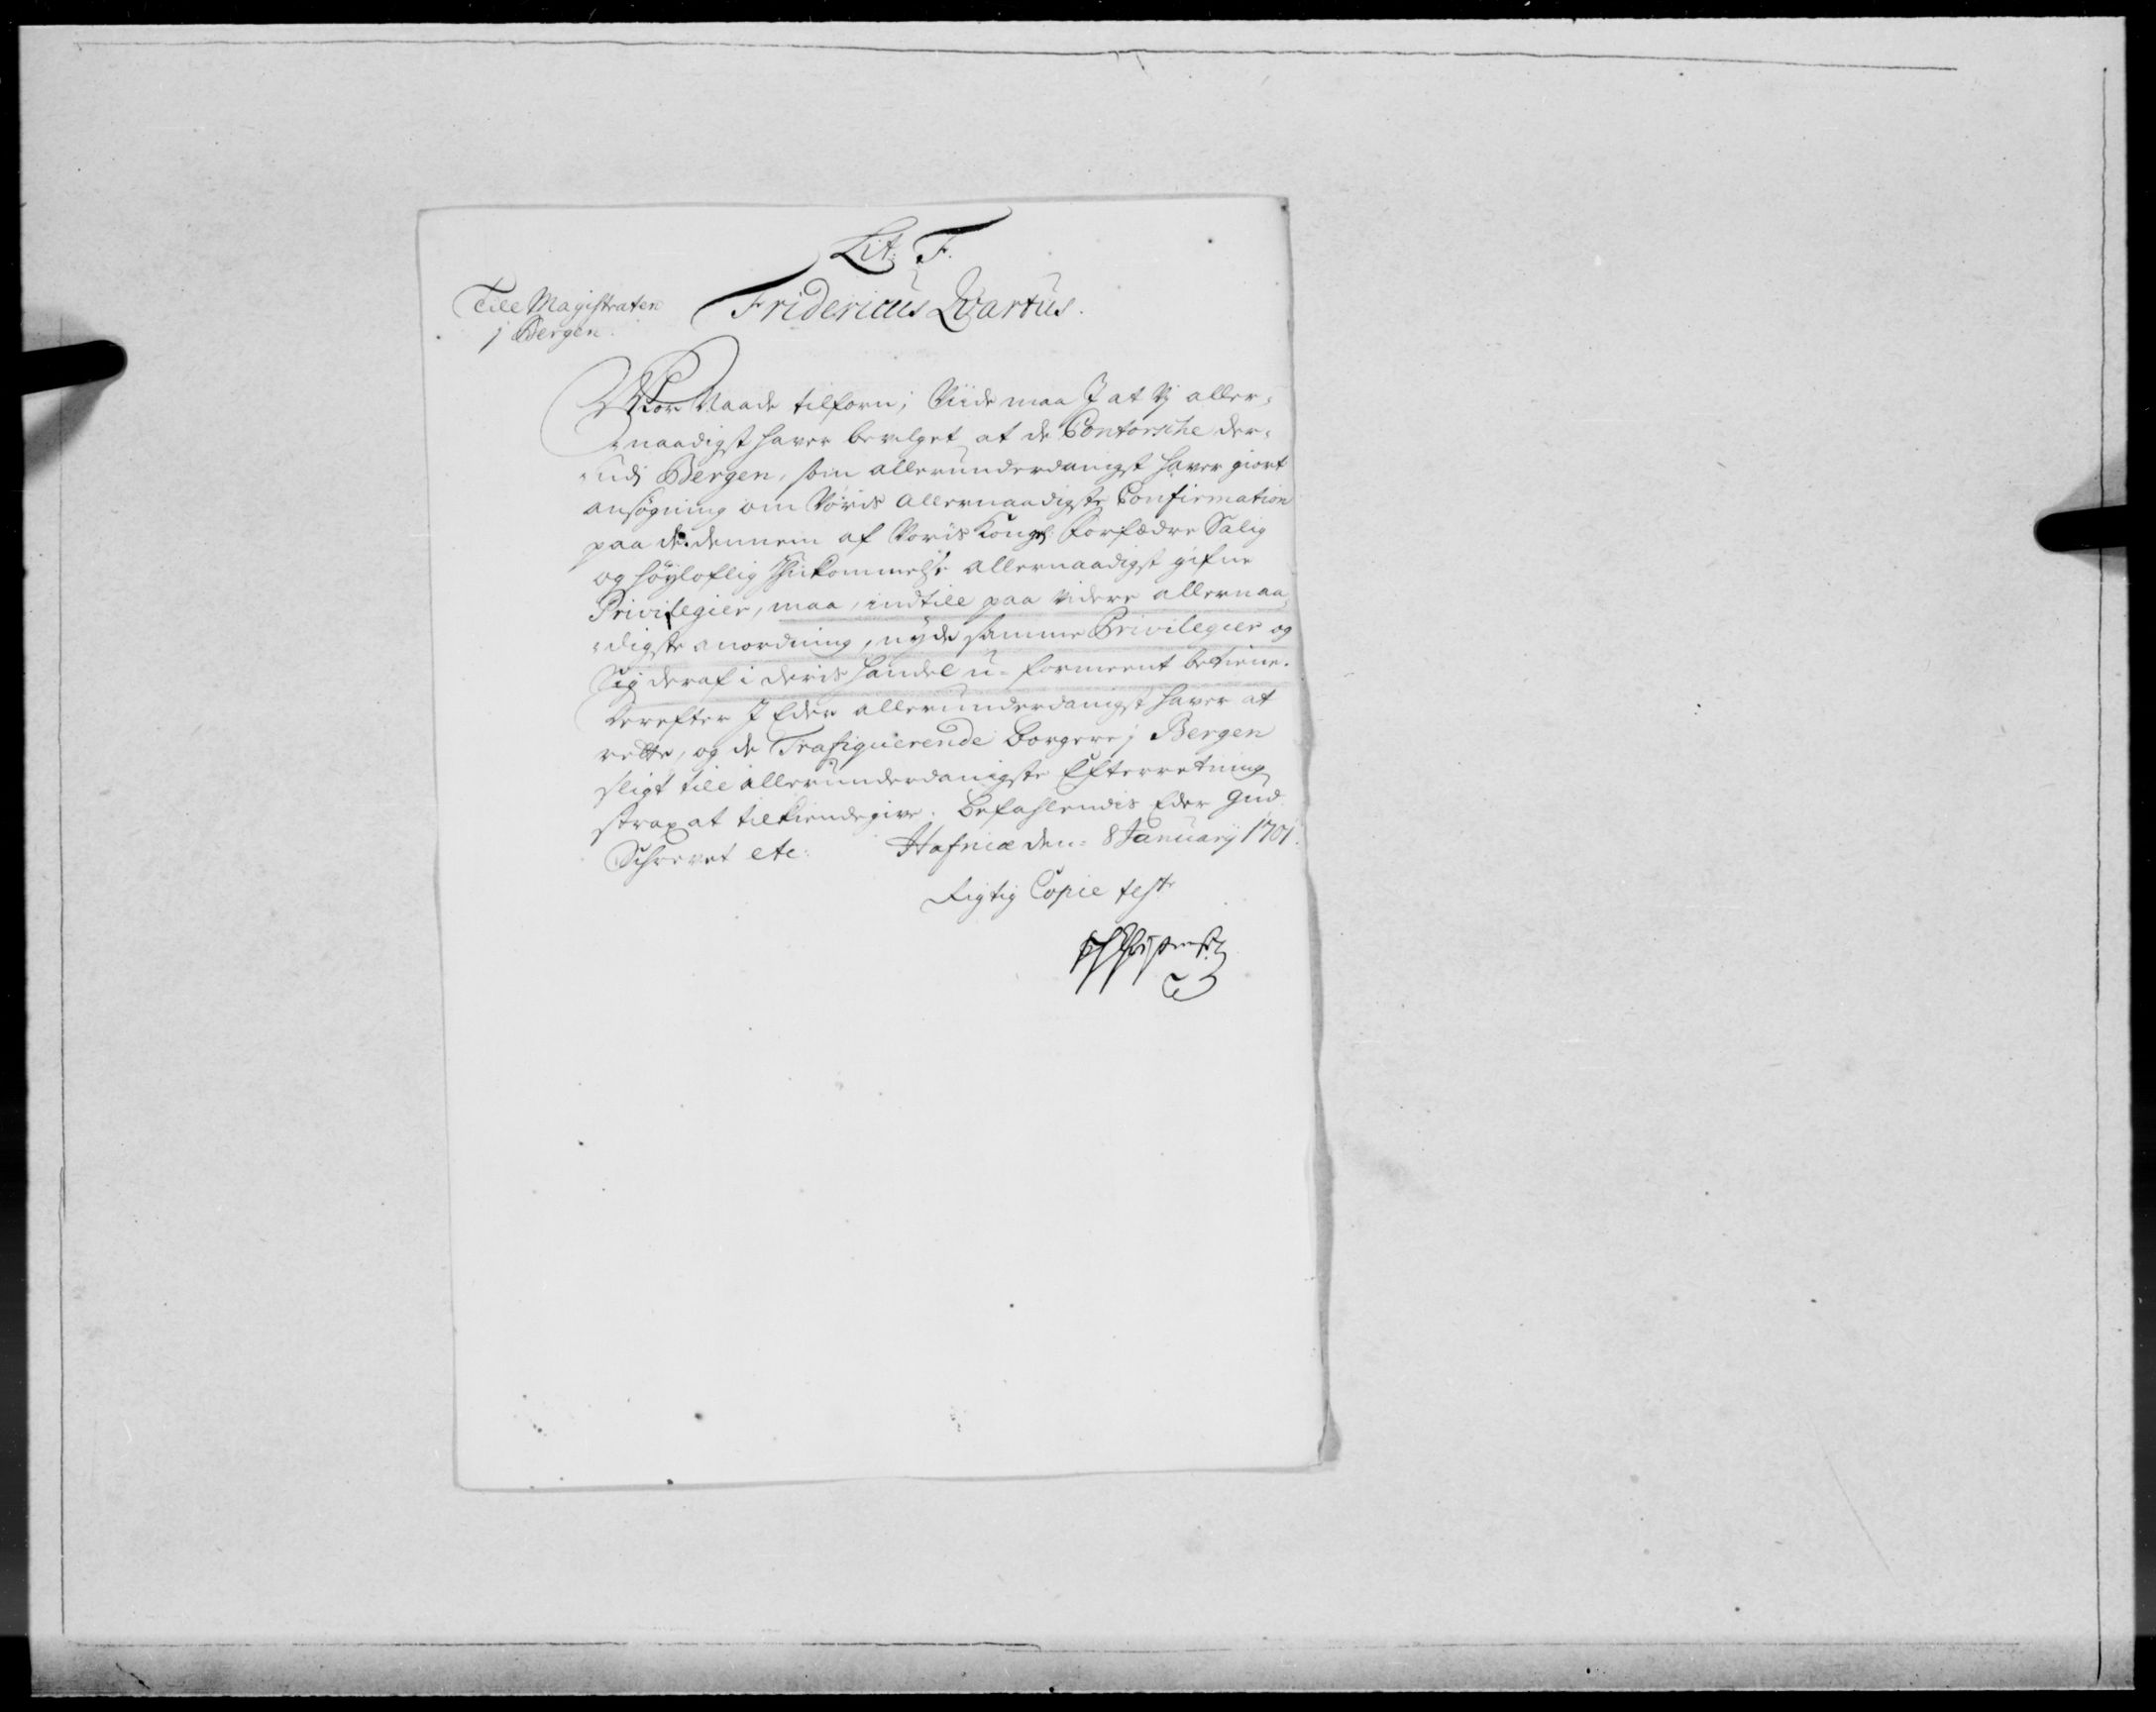 Lit: F.
Till Magistraten
i Bergen.
Fridericus Qvartus.
Vor Naade tilforn; Viide maa I at Vj aller-
naadigst haver bevilget at de Contorsche der-
udj Bergen, som allerunderdanigst haver giort
ansøgning om Voris allernaadigste Confirmation
paa de dennem af Voris Kongl: Forfædre Salig
og høyloflig Ihukommelse allernaadigst gifne
Privilegier, maa, indtill paa videre allernaa-
digste anordning, nyde samme Privilegier og
Sig deraf i deris handel u-formeent betiene.
Derefter I Eder allerunderdanigst haver at
rette, og de Trafiquerende borgere i Bergen
sligt till allerunderdanigste Efterretning
strax at tilkiendegive. Befahlendis Eder Gud
Schrevet etc: Hafniæ den: 8 January 1701.
Rigtig Copie test